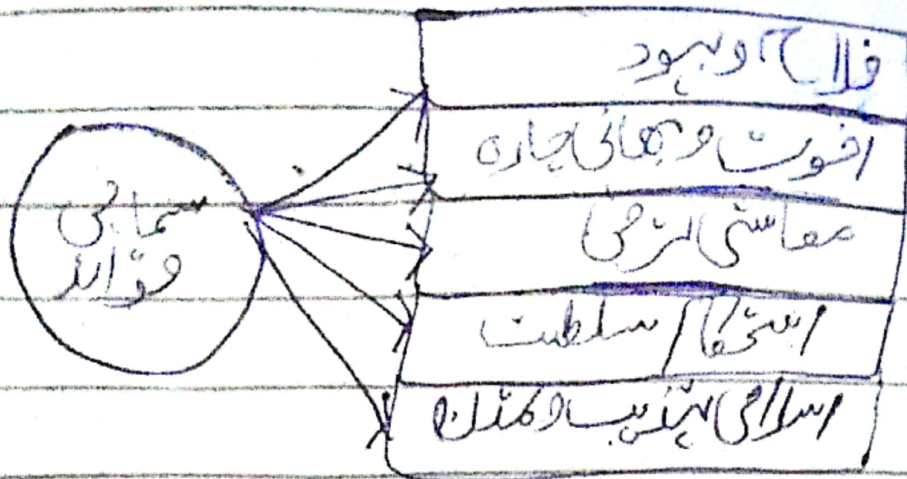 سماجی
فوائد
فلاح و بہبود
اخوت و بھائی چارہ
معاشی ترقی
استحکام سلطنت
اسلامی تہذیب و تمدن